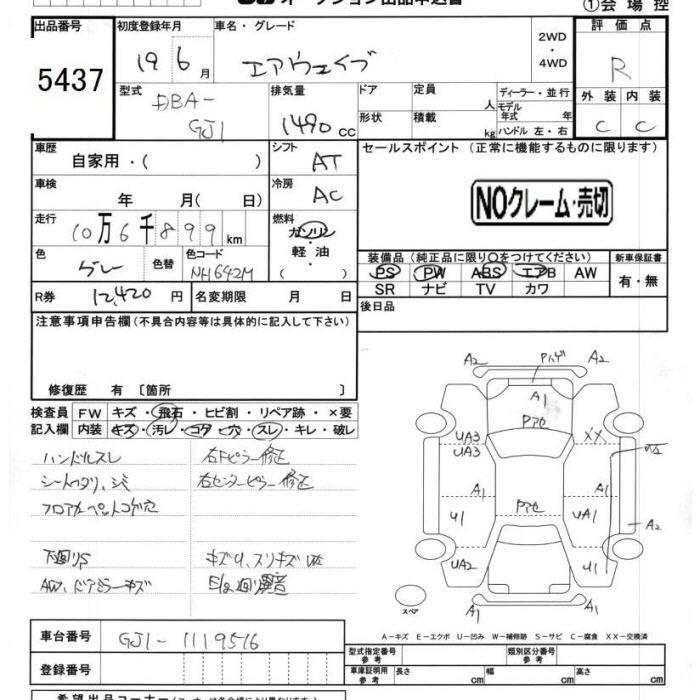 オークション出品申込書
①会場控
出品番号 5437
初度登録年月 19 6月
車名・グレード エアウェイブ
2WD・4WD
評価点 R
外装 C 内装 C
型式 DBA-GJ1
排気量 1490 cc
ドア 定員 人
形状 積載 kg
ディーラー・並行
モデル年式 年
ハンドル 左・右
車歴 自家用・( )
シフト AT
セールスポイント (正常に機能するものに限ります)
車検 年 月( 日)
冷房 AC
NOクレーム・売切
走行 10万6千899km
燃料 ガソリン・軽油・( )
色 グレー 色替 色コード NH642M
装備品 (純正品に限り○をつけてください)
新車保証書 有・無
PS PW ABS エアB AW
SR ナビ TV カワ
R券 12,420 円 名変期限 月 日
後日品
注意事項申告欄 (不具合内容等は具体的に記入して下さい)
修復歴 有〔箇所 〕
検査員記入欄
FW キズ・飛石・ヒビ割・リペア跡・×要
内装 キズ・汚レ・コゲ・穴・スレ・キレ・破レ
ハンドルスレ 右Fピラー修正
シートコゲ, シミ 右センターピラー修正
フロアカーペットコゲ穴
下回りS キズ U, スリキズ
AW, ドアミラーキズ E/g廻異音
A2 A2
A1
UA3 XX
UA3
A1 A1
U1 UA1 A2
UA2 U1
A1 A1
スペア
A-キズ E-エクボ U-凹み W-補修跡 S-サビ C-腐食 XX-交換済
車台番号 GJ1-1119516
型式指定番号 参考 類別区分番号 参考
登録番号
車庫証明用 参考 長さ cm 幅 cm 高さ cm
希望出品コーナー